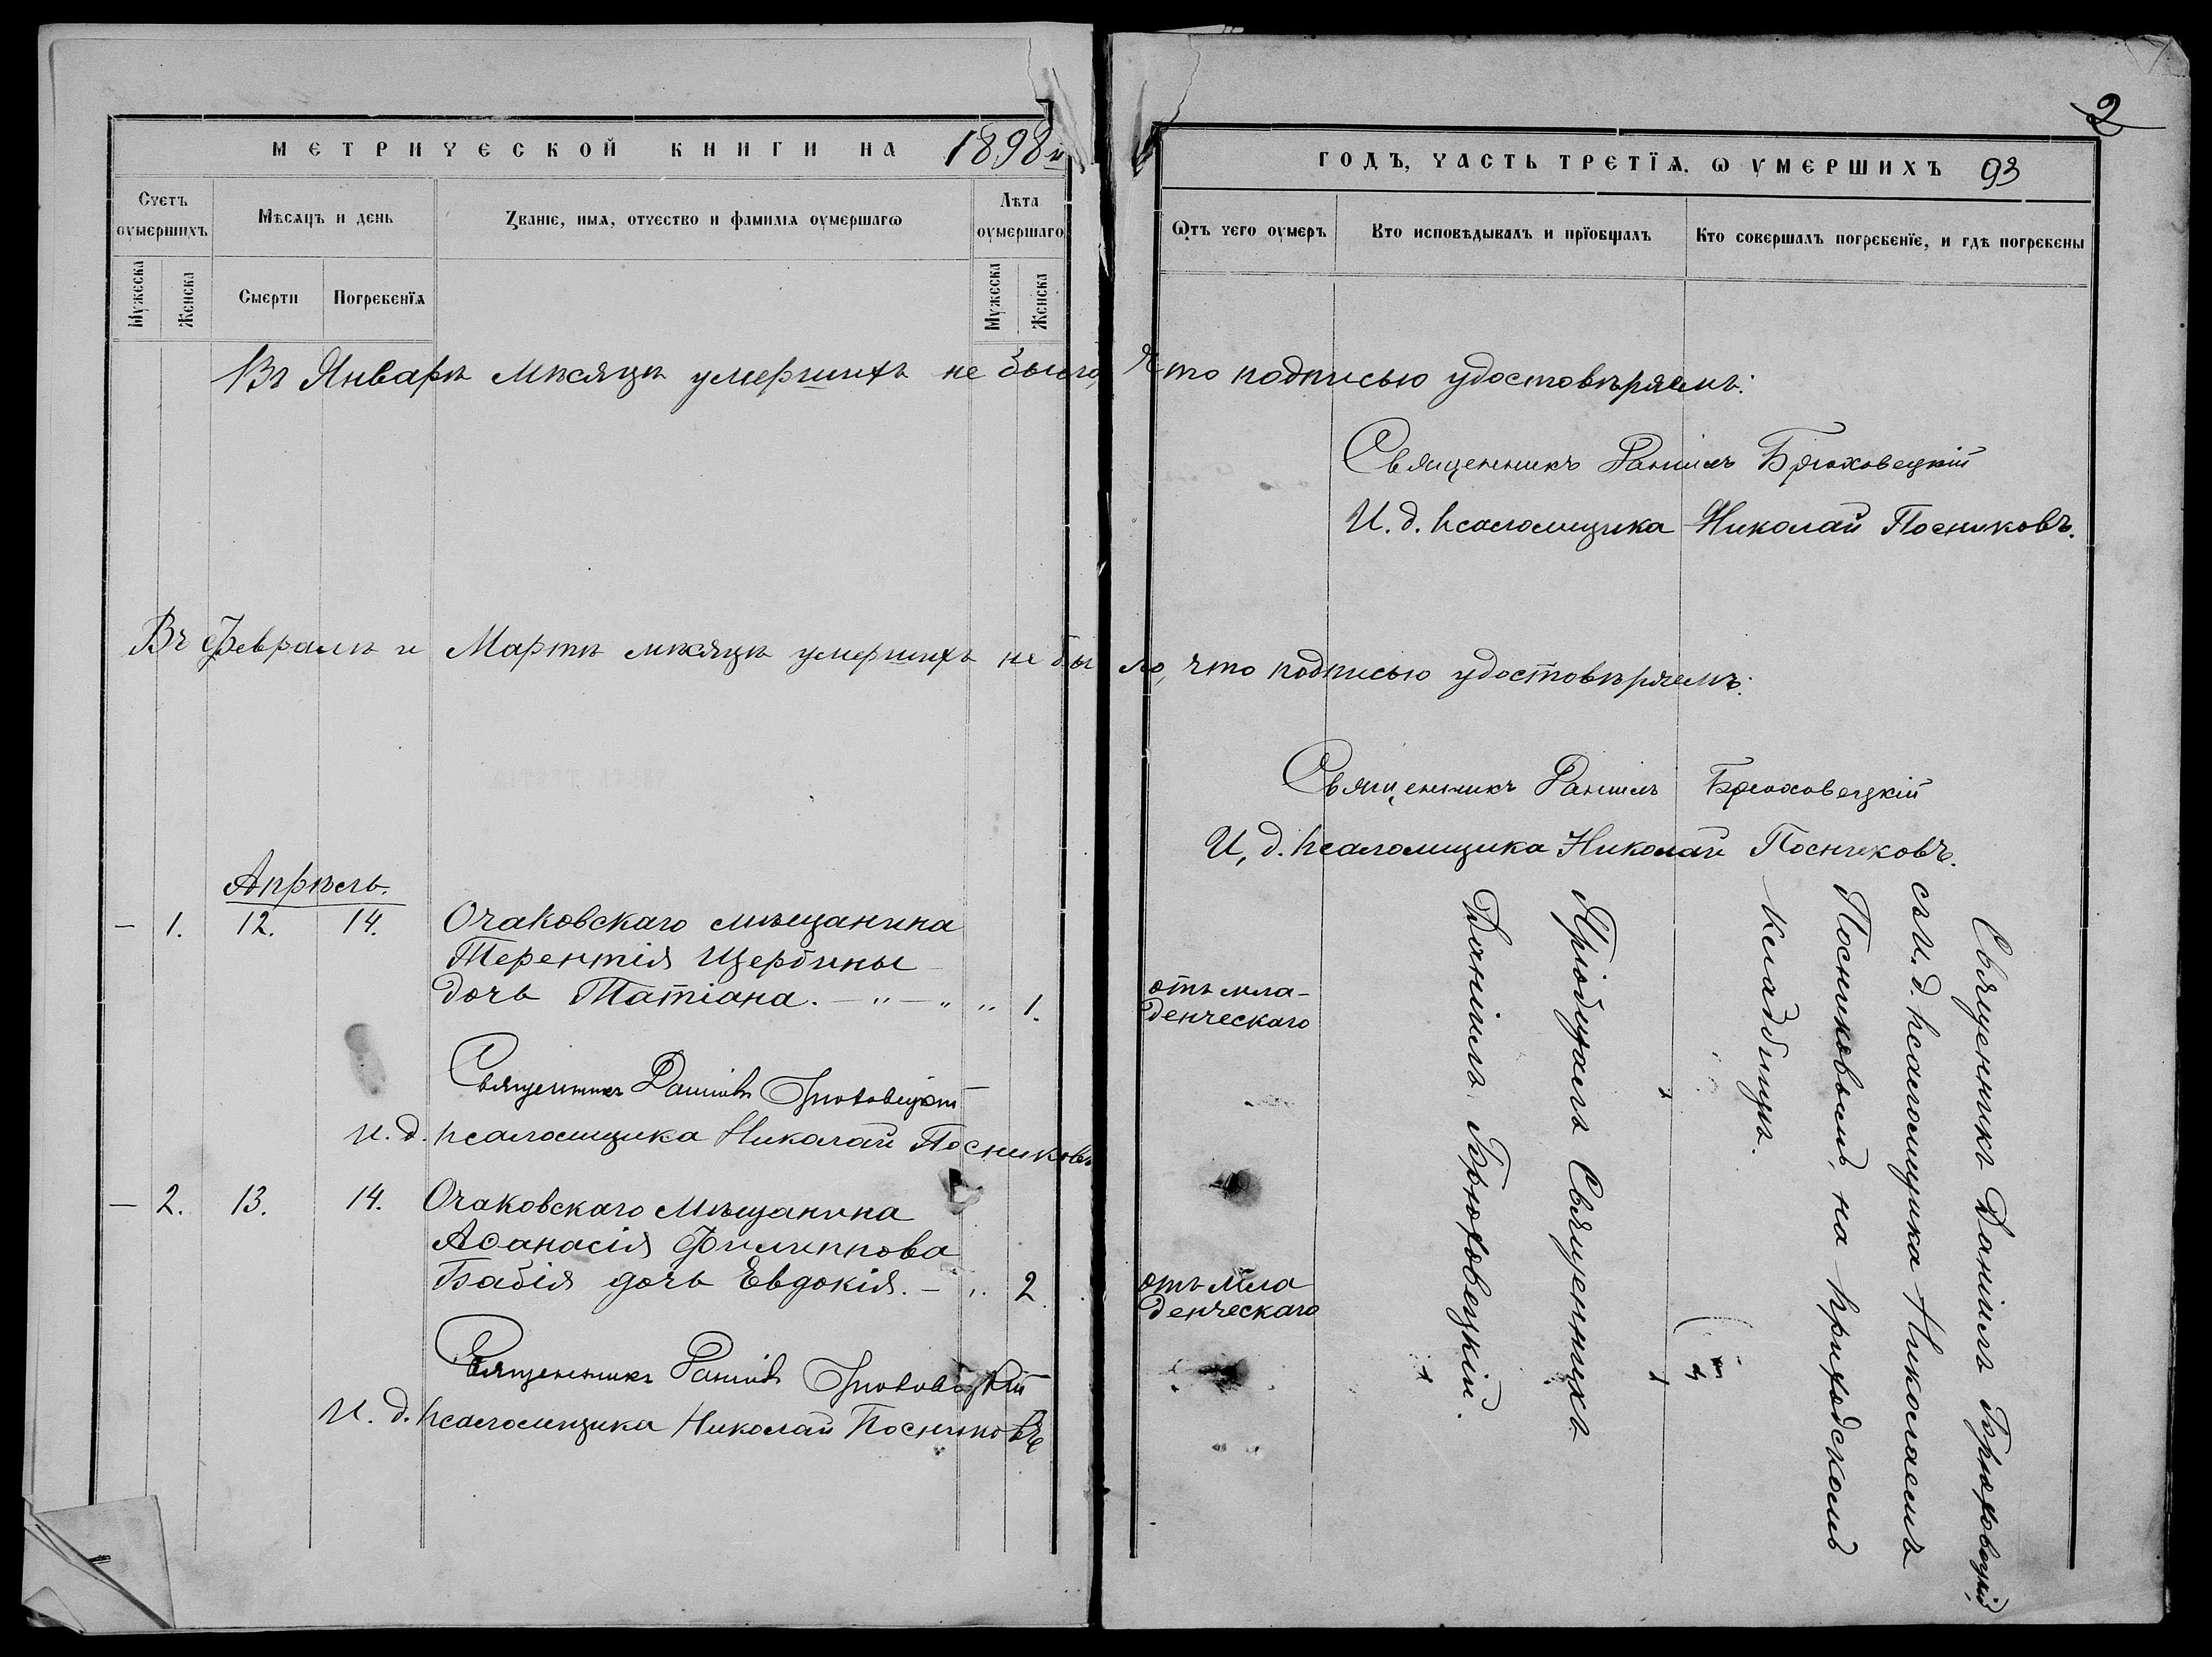 МЕТРИЧЕСКОЙ КНИГИ НА 1898й
Счетъ оумершихъ
Мѣсяцъ и день
Званіе, имя, отчество и фамилія оумершагѡ
Лѣта оумершаго
Мужеска
Женска
Смерти
Погребенїя
Мужеска
Женска
2
ГОДЪ, ЧАСТЬ ТРЕТЇЯ. Ѡ УМЕРШИХЪ 93
Ѿтъ чего оумеръ
Кто исповѣдывалъ и прїобщалъ
Кто совершалъ погребенїе, и гдѣ погребены
Въ Январѣ мѣсяцѣ умершихъ не было, что подписью удостовѣряемъ:
Священникъ Даніилъ Брюховецкій
И. д. псаломщика Николай Посниковъ.
Въ Февралѣ и Мартѣ мѣсяцѣ умершихъ не было, что подписью удостовѣряемъ:
Священникъ Даніилъ Брюховецкій
И. д. псаломщика Николай Посниковъ.
Апрѣль.
– 1. 12. 14. Очаковскаго мѣщанина
Терентія Щербины
дочь Татіана. – " – " " 1.
отъ мла-
денческаго
Священникъ Даніилъ Брюховецкій
И. д. псаломщика Николай Посниковъ
– 2. 13. 14. Очаковскаго мѣщанина
Аѳанасія Филиппова
Бабія дочь Евдокія. – " 2.
отъ мла
денческаго
Священникъ Даніилъ Брюховецкій
И. д. псаломщика Николай Посниковъ
Пріобщалъ Священникъ
Даніилъ Брюховецкій.
Священникъ Даніилъ Брюховецкій
съ И. д. псаломщика Николаемъ
Посниковымъ, на приходскомъ
кладбищѣ.